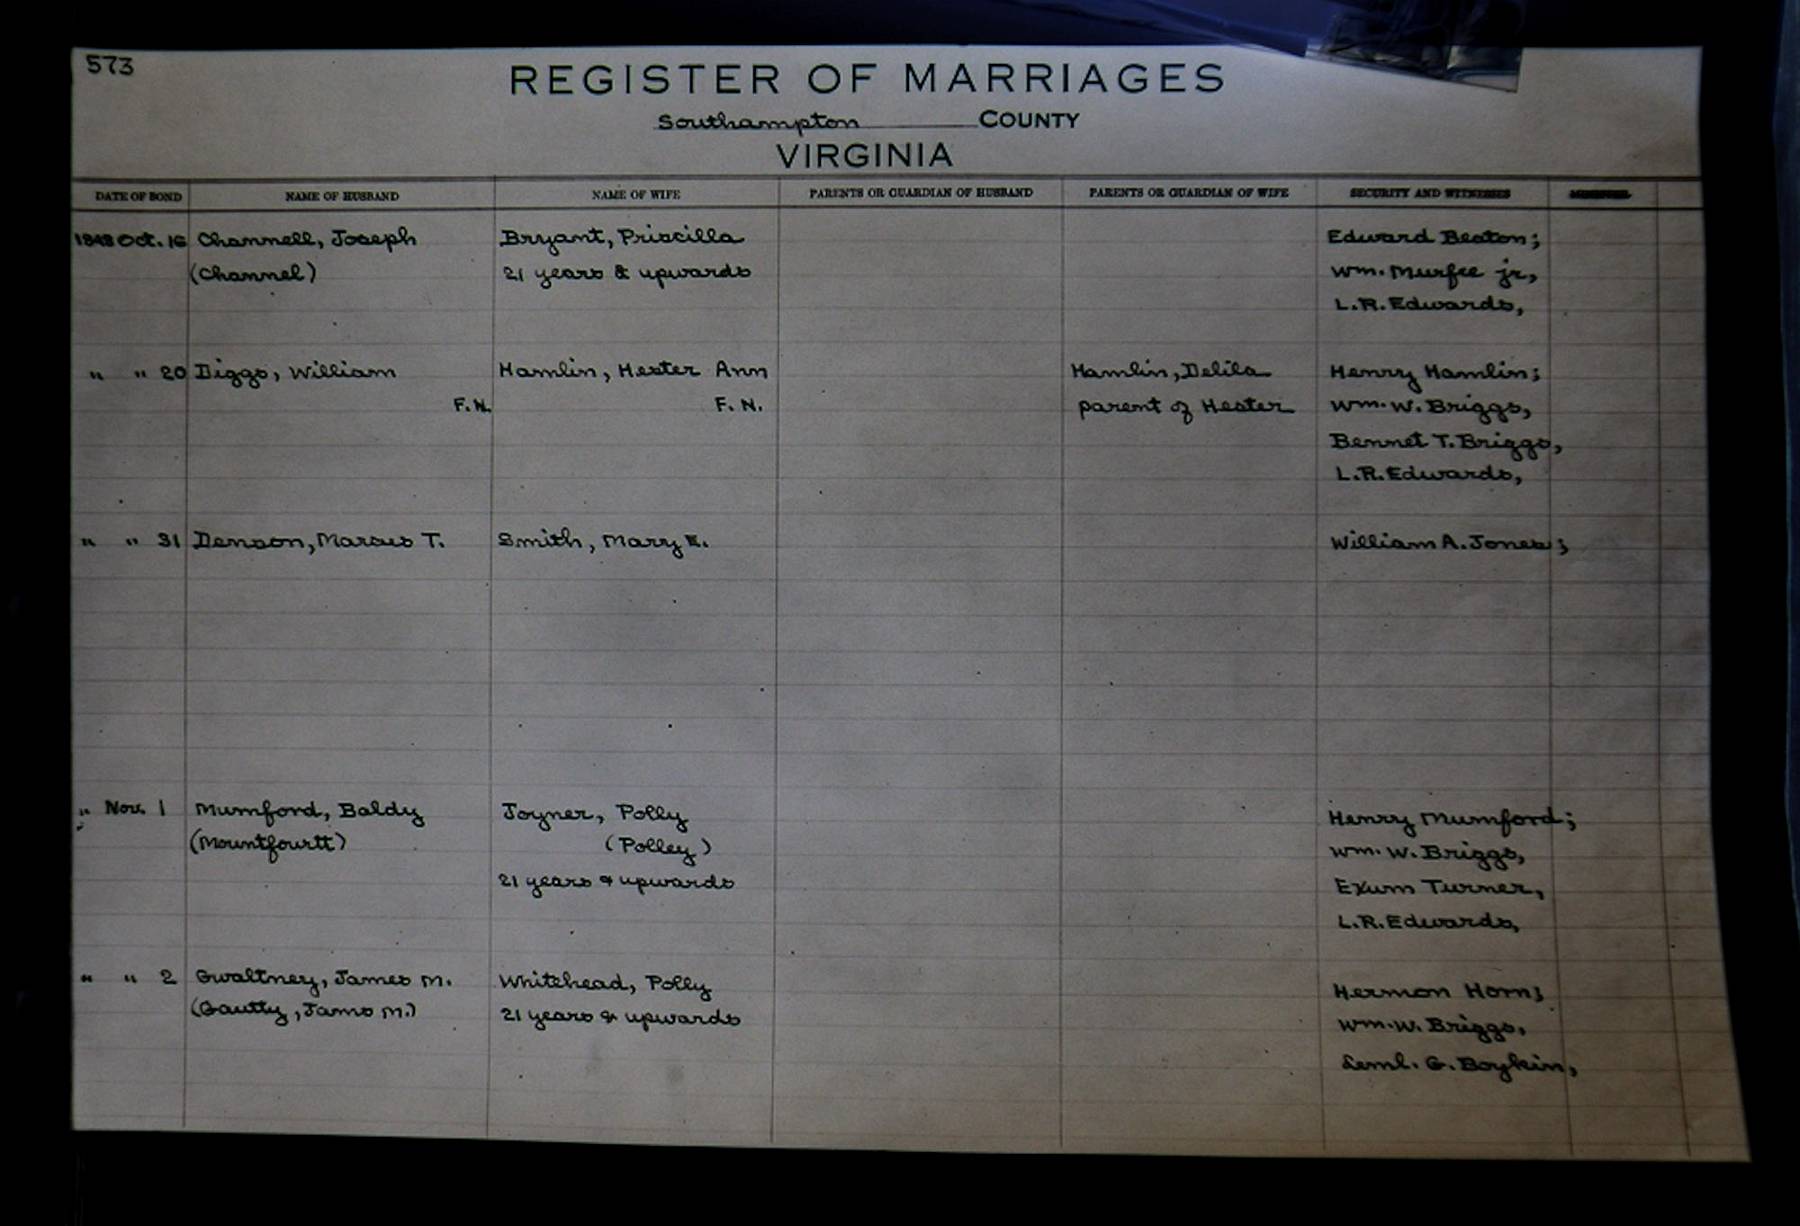 573
REGISTER OF MARRIAGES
Southampton COUNTY
VIRGINIA
DATE OF BOND NAME OF HUSBAND NAME OF WIFE PARENTS OR GUARDIAN OF HUSBAND PARENTS OR GUARDIAN OF WIFE SECURITY AND WITNESSES
1848 Oct. 16 Channell, Joseph Bryant, Priscilla Edward Beaton;
(Channel) 21 years & upwards Wm. Murfee jr,
L.R. Edwards,
" " 20 Diggs, William Hamlin, Hester Ann Hamlin, Delila Henry Hamlin;
F.N. F.N. parent of Hester Wm. W. Briggs,
Bennet T. Briggs,
L.R. Edwards,
" " 31 Denson, Marcus T. Smith, Mary E. William A. Jones;
" Nov. 1 Mumford, Baldy Joyner, Polly Henry Mumford;
(Mountfourtt) (Polley) Wm. W. Briggs,
21 years & upwards Exum Turner,
L.R. Edwards,
" " 2 Gwaltney, James M. Whitehead, Polly Hermon Horn;
(Gautty, Jams M.) 21 years & upwards Wm. W. Briggs,
Leml. G. Boykin,